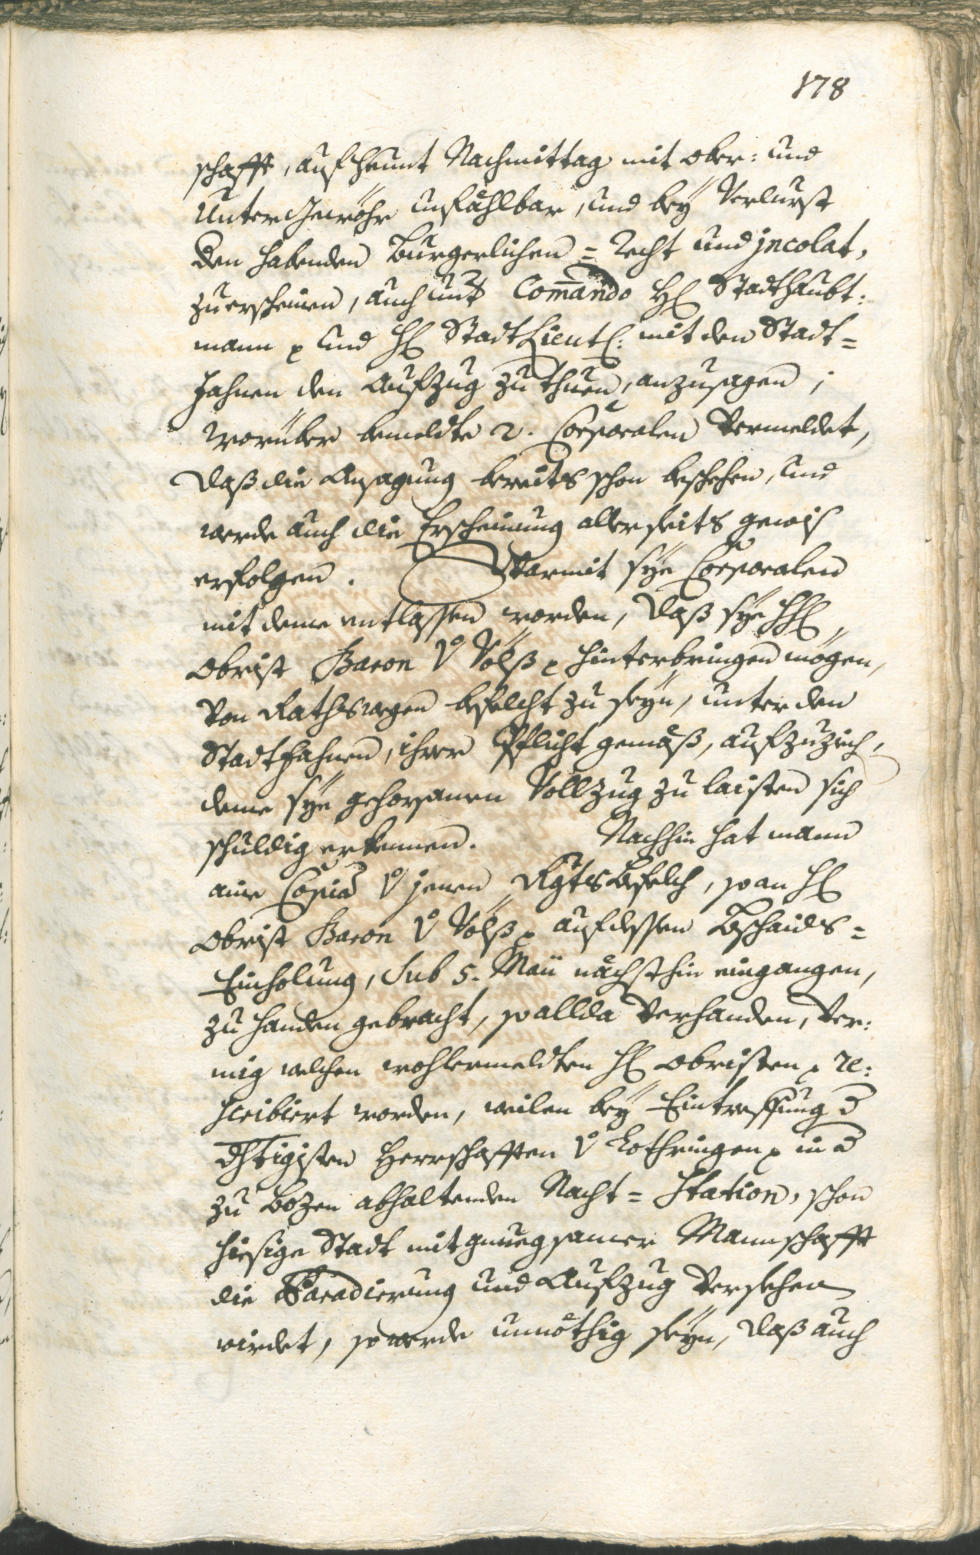 178
schafft, auf heunt Nachmittag mit ober: und
Unter Gewöhr unfählbar, und bey Verlurst
den habenden Burgerlichen = Recht und jncolat,
zuerscheinen, auch unt Comando H: Stadthaubt:
mann p und H: Stadt Lieut: mit den Stadt=
fahnen den Aufzug zu thuen, anzusagen;
worüber bemeldte 2. Corporalen vermeldet,
daß die Ansagung bereits schon beschehen, und
werde auch die Erscheinung allerseits gewis
erfolgen. Warmit sye Corporalen
mit deme entlassen worden, daß sye HH:
Obrist Baron v Völß p hinterbringen mögen,
von Rathswegen befelcht zu seyn, unter den
Stadtfahnen, ihrer Pflicht gemäß, aufzuzieh,
deme sye gehorsamen Vollzug zu laisten sich
schuldig erkennen. Nachhin hat mann
aine Copia v jenen Rgts Befelch, so an H:
Obrist Baron v Völß p auf dessen Bschaids=
Einholung, sub 5. Maii nächsthin eingangen,
zu handen gebracht, so allda verhanden, ver:
mig welchen wohlermeldten H: Obristen p re:
scribiert worden, weilen bey Eintreffung d
dhtigisten Herrschafften v Lothringen p in d
zu Bozen abhaltenden Nacht = Station, schon
hiesige Stadt mit genuegsamer Mannschafft
die Paradierung und Aufzug versehen
wirdet, so werde unnöthig seyn, daß auch